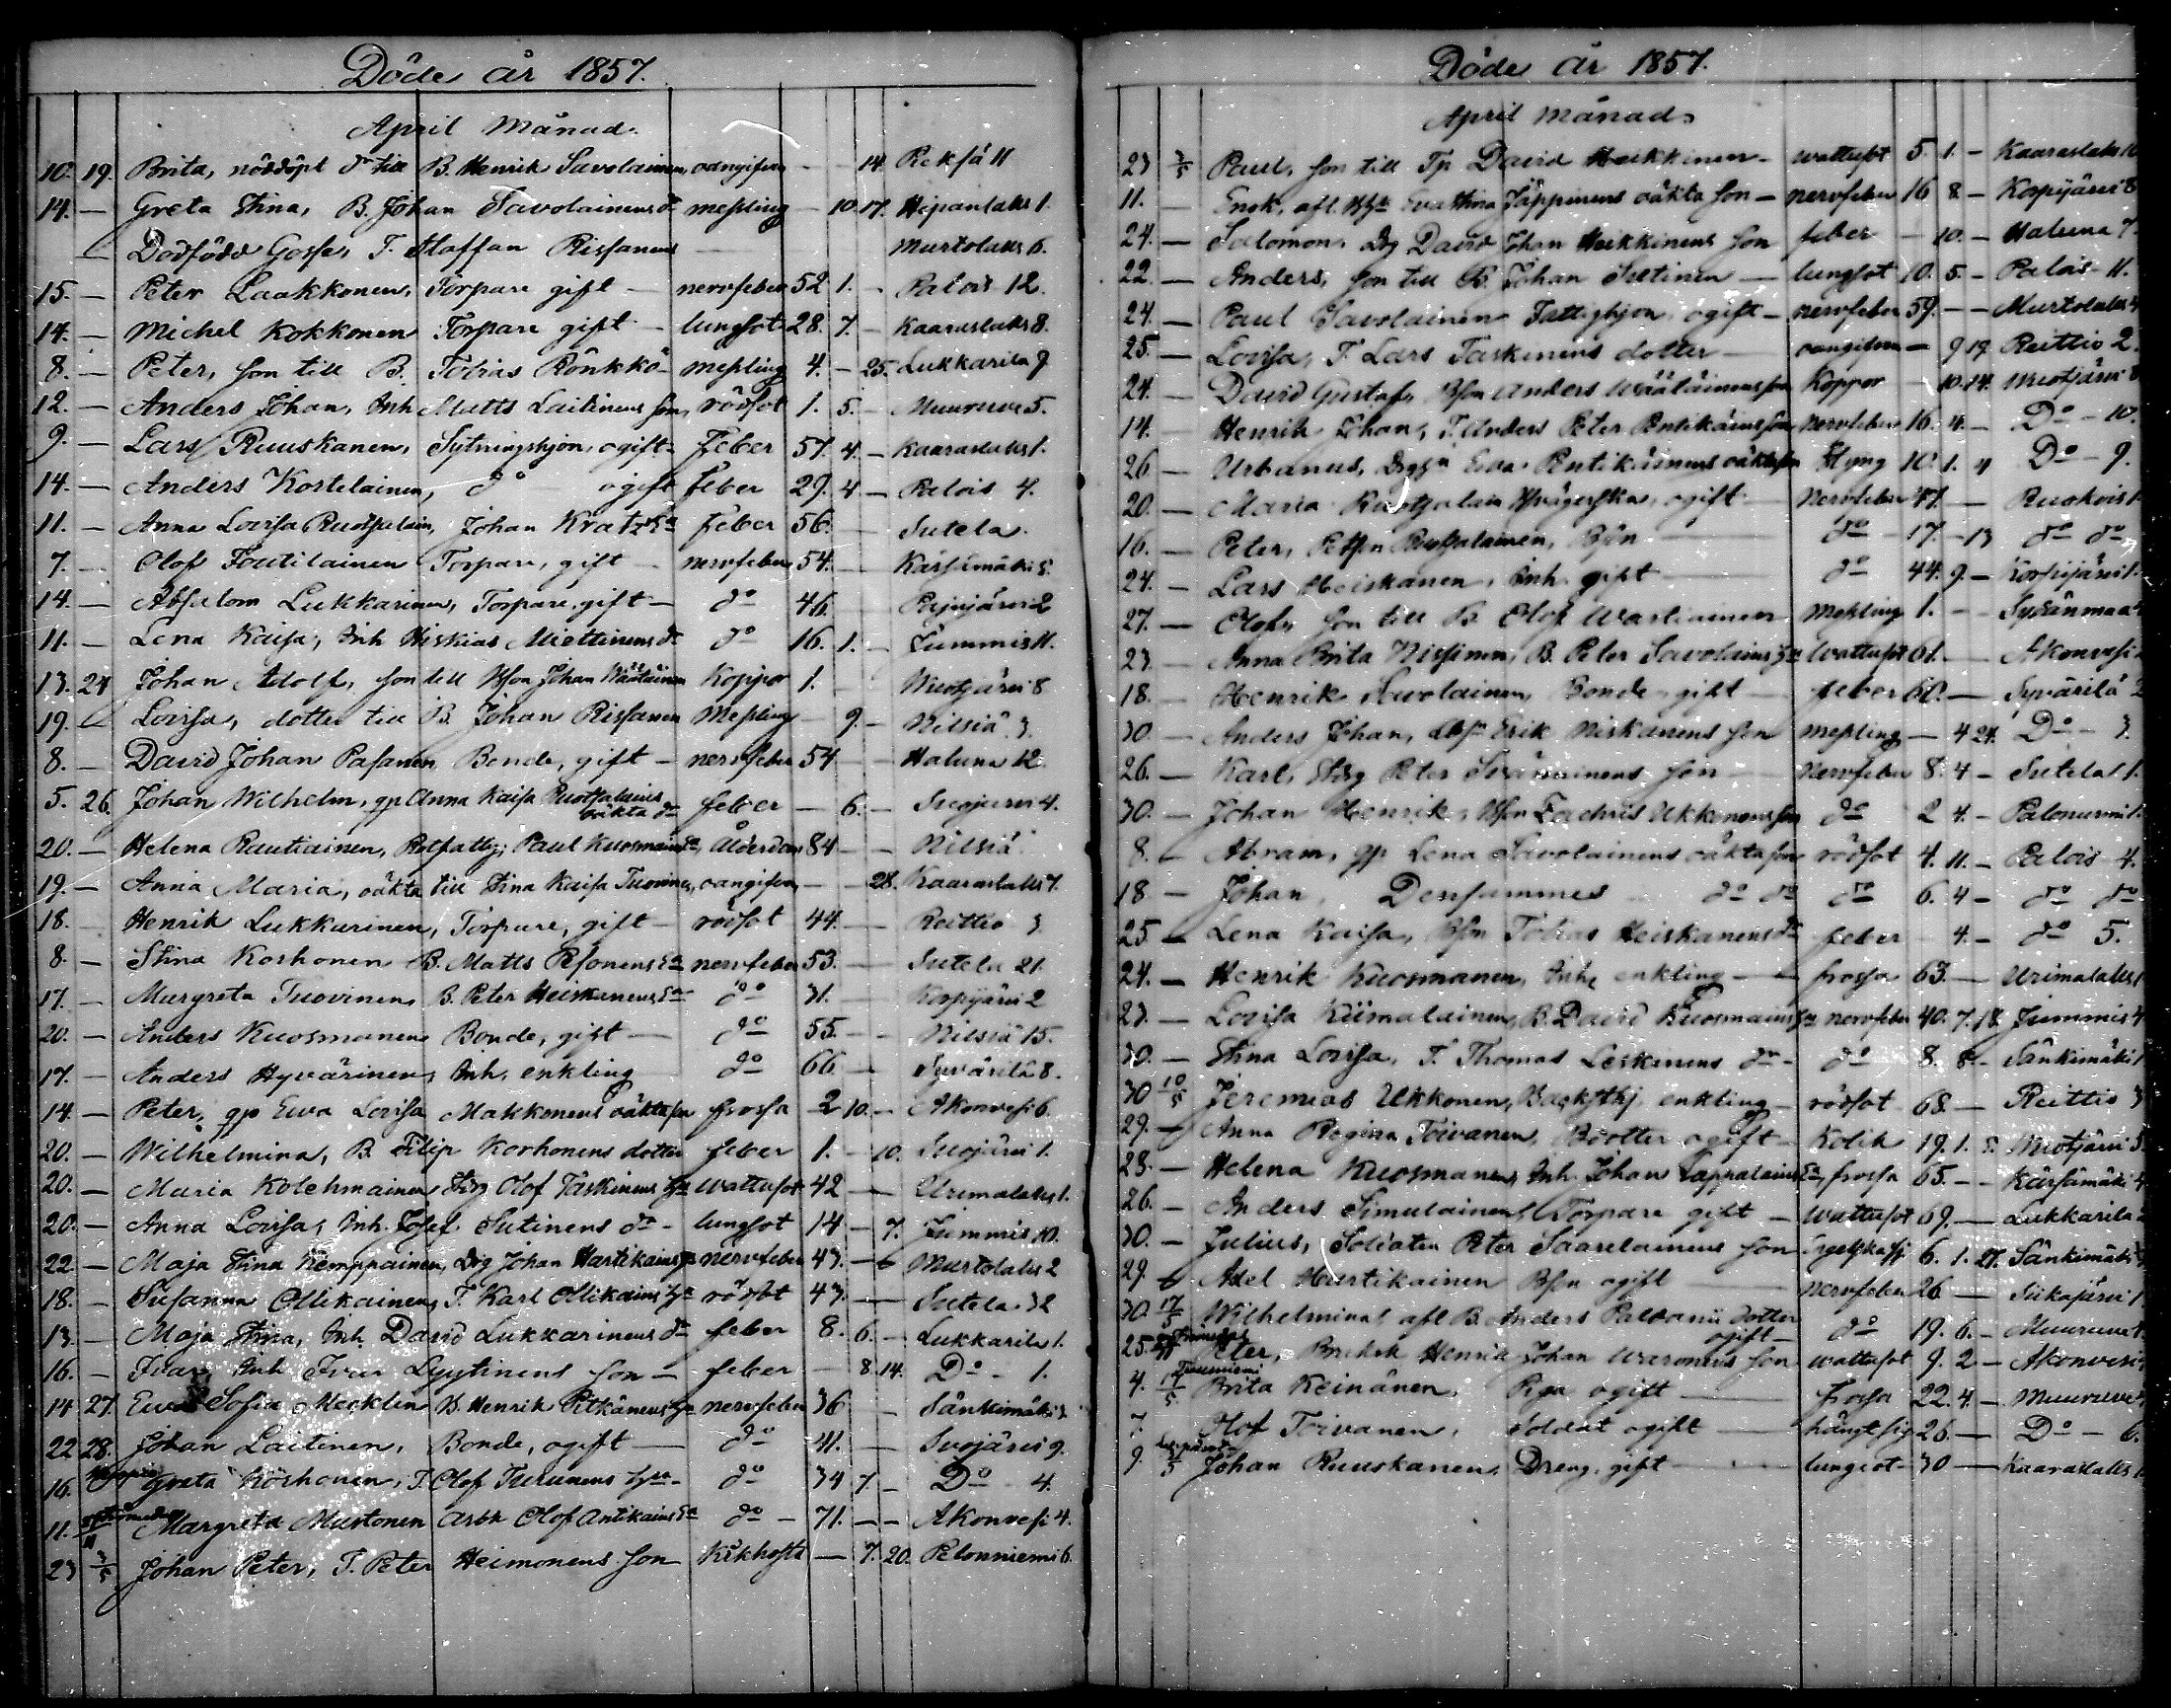 Döde år 1857.
April Månad.
10. 19. Brita, nöddöpt dr till B. Henrik Savolainen, oangifven - - 14. Reksä 11
14. — Greta Stina, B. Johan Savolainens dr messling - 10. 17. Hipanlaks 1.
— Dödfödd Gosse, T. Staffan Rissanens Murtolaks 6.
15. — Peter Laakkonen, Torpare gift — nervfeber 52 1. - Palois 12.
14. — Michel Kokkonen Torpare gift — lungsot 28. 7. - Kaaraslaks 8.
8. — Peter, son till B. Tobias Rönkkö messling 4. - 25. Lukkarila 9
12. — Anders Johan, Inh Matts Laitinens son, rödsot 1. 5. - Muuruves 5.
9. — Lars Ruuskanen, Sytningshjon, ogift - Feber 57. 4. - Kaaraslaks 1.
14. — Anders Kortelainen, do ogift feber 29. 4 - Palois 4.
11. — Anna Lovisa Ruotsalain, Johan Kratz Ea feber 56. — Sutela.
7. — Olof Toutilainen Torpare, gift — nervfeber 54. — Kärsämäki 5.
14. — Absalom Lukkarinen, Torpare, gift — do 46. — Pajujärvi 2
11. — Lena Kaisa, Inh Hiskias Miettinens dr do 16. 1. - Jummis 11.
13. 24 Johan Adolf, son till Bson Johan Väätäinen Koppor 1. Muotjärvi 8
19. — Lovisa, dotter till B. Johan Rissanen Messling - 9. - Nilsiä 3.
8. — David Johan Pasanen Bonde, gift — nervfeber 54 - Haluna 12.
5. 26. Johan Wilhelm, qp Anna Kaisa Ruotsalains oäkta feber — 6. - Suojärvi 4.
20. — Helena Rautiainen, Rotfattig, Paul Kuosmains Ea, Ålderdom 84 — Nilsiä
19. — Anna Maria, oäkta till Stina Kaisa Tuovinen, oangifven, - - 28. Kaaraslaks 7.
18. — Henrik Lukkarinen, Torpare, gift — rödsot 44. — Reittio 3
8. — Stina Korhonen B. Matts Pesonens Ea nervfeber 53. — Sutela 21.
17. — Margreta Tuovinen, B. Peter Heiskanens Ea do 31. Korpijärvi 2
20. — Anders Kuosmanen Bonde, gift — do 55. — Nilsiä 15.
17. — Anders Hyvärinen, Inh, enkling do 66 — Syvärilä 8.
14. — Peter, qp Ewa Lovisa Makkonens oäkta son frossa 2 10. - Akonvesi 6.
20. — Wilhelmina, B. Filip Korhonens dotter feber 1. - 10. Suojärvi 1.
20. — Maria Kolehmainen Torp Olof Taskinens Hu Wattusot 42 — Urimalaks 1.
20. — Anna Lovisa, Inh. Josef Sutinens dr - lungsot 14 - 7. Jummis 10.
22 — Maja Stina Kemppainen, Drg Johan Hartikains Hu nervfeber 43. — Murtolaks 2
18. — Susanna Ollikainen, T. Karl Ollikains Hu rödsot 43. — Sutela 32
13. — Maja Stina, Inh. David Lukkarinens dr feber 8. 6. - Lukkarila 1.
16. — Ivar, Inh Ivar Lyytinens son — feber - 8. 14. Do - 1.
14 27. Ewa Sofia Mecklin B. Henrik Pitkänens Hu nervfeber 36 — Sänkimäki 3.
22 28. Johan Laitinen, Bonde, ogift — do 41. — Suojärvi 9.
16. Greta Korhonen, T. Olof Turunens Hu - do 34 7 - Do 4.
11. Margreta Mustonen Arbk Olof Antikains Ea do - 71. - - Akonvesi 4.
23 3/5 Johan Peter, T. Peter Heimonens son Kikhosta — 7. 20. Pelonniemi 6.
Döde år 1857.
April Månad.
23 3/5 Paul, son till Tp David Heikkinen - wattusot 5. 1. - Kaaraslaks 10
11. — Enok, afl. Eva Stina Jäppinens oäkta son - nervfeber 16 8 - Korpijärvi 8
24. — Salomon, Drg David Johan Heikkinens son feber - 10. - Haluna 7.
22. — Anders, son till B. Johan Sutinen — lungsot 10. 5. - Palois 11.
24. — Paul Savolainen Fattighjon, ogift - nervfeber 59. — Murtolaks 4
25. — Lovisa, T. Lars Taskinens dotter — oangifven — 9 19. Reittio 2.
24. — David Gustaf, Bson Anders Wäätäinens son Koppor - 10. 14. Muotjärvi 8
14. Henrik Johan, T. Anders Peter Pentikäins son, nervfeber 16. 4. - Do - 10.
26 — Urbanus, Ewa Pentikäinens oäkta son Styng 10. 1. 4 Do - 9.
20. — Maria Ruotsalain ogift - Nervfeber 47. — Ruokois 1.
16. — Peter, Petson Ruotsalainen, Bson do - 17. - 13 do do
24. — Lars Heiskanen, Inh. gift do 44. 9. - Korpijärvi 1.
27. — Olof, son till B. Olof Wartiainen Messling 1. - - Sydänmaa
23. — Anna Brita Nissinen, B. Peter Savolains Hu Wattusot 61. — Akonvesi
18. — Henrik Savolainen, Bonde gift — feber 60. — Syvärilä 2
30. — Anders Johan, Erik Niskanens son messling — 4 24. Do - 3.
26. — Karl, Peter son — Nervfeber 8. 4 - Sutela 1.
30. — Johan Henrik, Bson Zachris Ukkonens son do 2 4. - Palonurmi 1.
8. — Abram, qp Lena Savolainens oäkta son rödsot 4. 11. - Palois 4.
18 — Johan, Densammes do do do 6. 4 - do do
25 — Lena Kaisa, Bson Tobias Heiskanens dr feber - 4. - do 5.
24. — Henrik Kuosmanen, Inh, enkling — frossa 63. — Urimalaks 1
23. — Lovisa Kiimalainen, B. David Kuosmains Hu nervfeber 40. 7. 18. Jummis 4
30. — Stina Lovisa, T. Thomas Leskinens dr - do 8. 8. - Sänkimäki 1
30 10/5 Jeremias Ukkonen, Backsthj. enkling — rödsot 68. — Reittio 3
29. — Anna Regina Toivanen, Bdotter ogift - Kolik 19. 1. 5. Muotjärvi 5
23. — Helena Kuosmanen, Inh. Johan Lappalains Ea frossa 65. - - Kärsämäki 4
26. — Anders Simulainen, Torpare gift — wattusot 69. — Lukkarila 2
30. — Julius, Soldaten Peter Saarelainens son 6. 1. 27. Sänkimäki
29. Axel Hartikainen Bson ogift — Nervfeber 26 — Siikajärvi 1
30. 17/5 Wilhelmina, afl B. Anders dotter ogift - do 19. 6. - Muuruves
25. Peter, Henrik Johan Waronens son wattusot 9. 2 - Akonvesi
4. Brita Keinänen, Piga ogift — frossa 22. 4. - Muuruves
7. Olof Toivanen, Soldat ogift — hängt sig 26. — Do - 6.
9. Johan Ruuskanen, Dreng, gift — lungsot 30 — Kaaraslaks